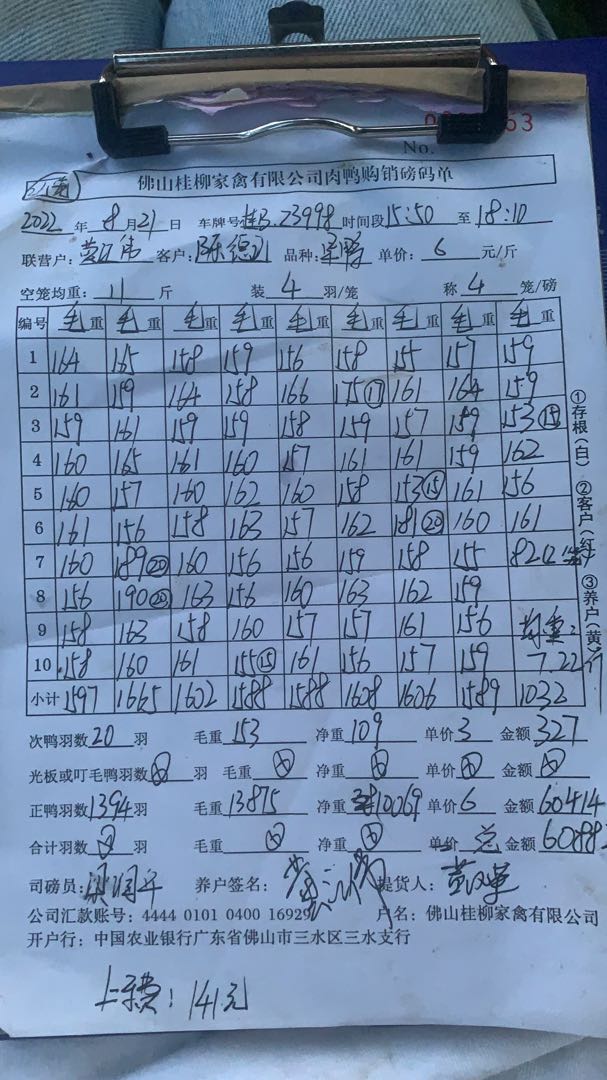 No.
佛山桂柳家禽有限公司肉鸭购销磅码单
2022 年 8 月 21 日 车牌号 桂B.Z3998 时间段 15:50 至 18:10
联营户: 客户: 品种: 单价: 6 元/斤
空笼均重: 11 斤 装 4 羽/笼 称 4 笼/磅
编号 毛重 毛重 毛重 毛重 毛重 毛重 毛重 毛重 毛重
1 164 165 158 159 156 158 155 157 159
2 161 159 164 158 166 175⑰ 161 164 159
3 159 161 159 159 158 159 157 159 153⑮
4 160 165 161 160 157 161 161 159 162
5 160 157 160 162 160 158 153⑮ 161 156
6 161 156 158 163 157 162 181⑳ 160 161
7 160 189⑳ 160 156 156 159 158 155 82
8 156 190⑳ 163 156 160 163 162 159
9 158 163 158 160 157 157 161 156 均重:
10 158 160 161 155⑮ 161 156 157 159 7.22斤
小计 1597 1665 1602 1588 1588 1608 1606 1589 1032
次鸭羽数 20 羽 毛重 153 净重 109 单价 3 金额 327
光板或叮毛鸭羽数 羽 毛重 净重 单价 金额
正鸭羽数 1394 羽 毛重 13875 净重 10069 单价 6 金额 60414
合计羽数 羽 毛重 净重 单价 总 金额 60882
司磅员: 养户签名: 提货人:
公司汇款账号: 4444 0101 0400 16929 户名: 佛山桂柳家禽有限公司
开户行: 中国农业银行广东省佛山市三水区三水支行
上车费: 141元
①存根(白) ②客户(红) ③养户(黄)